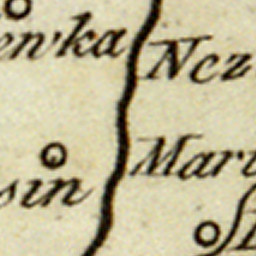 enka
Ncz
Mari
sin